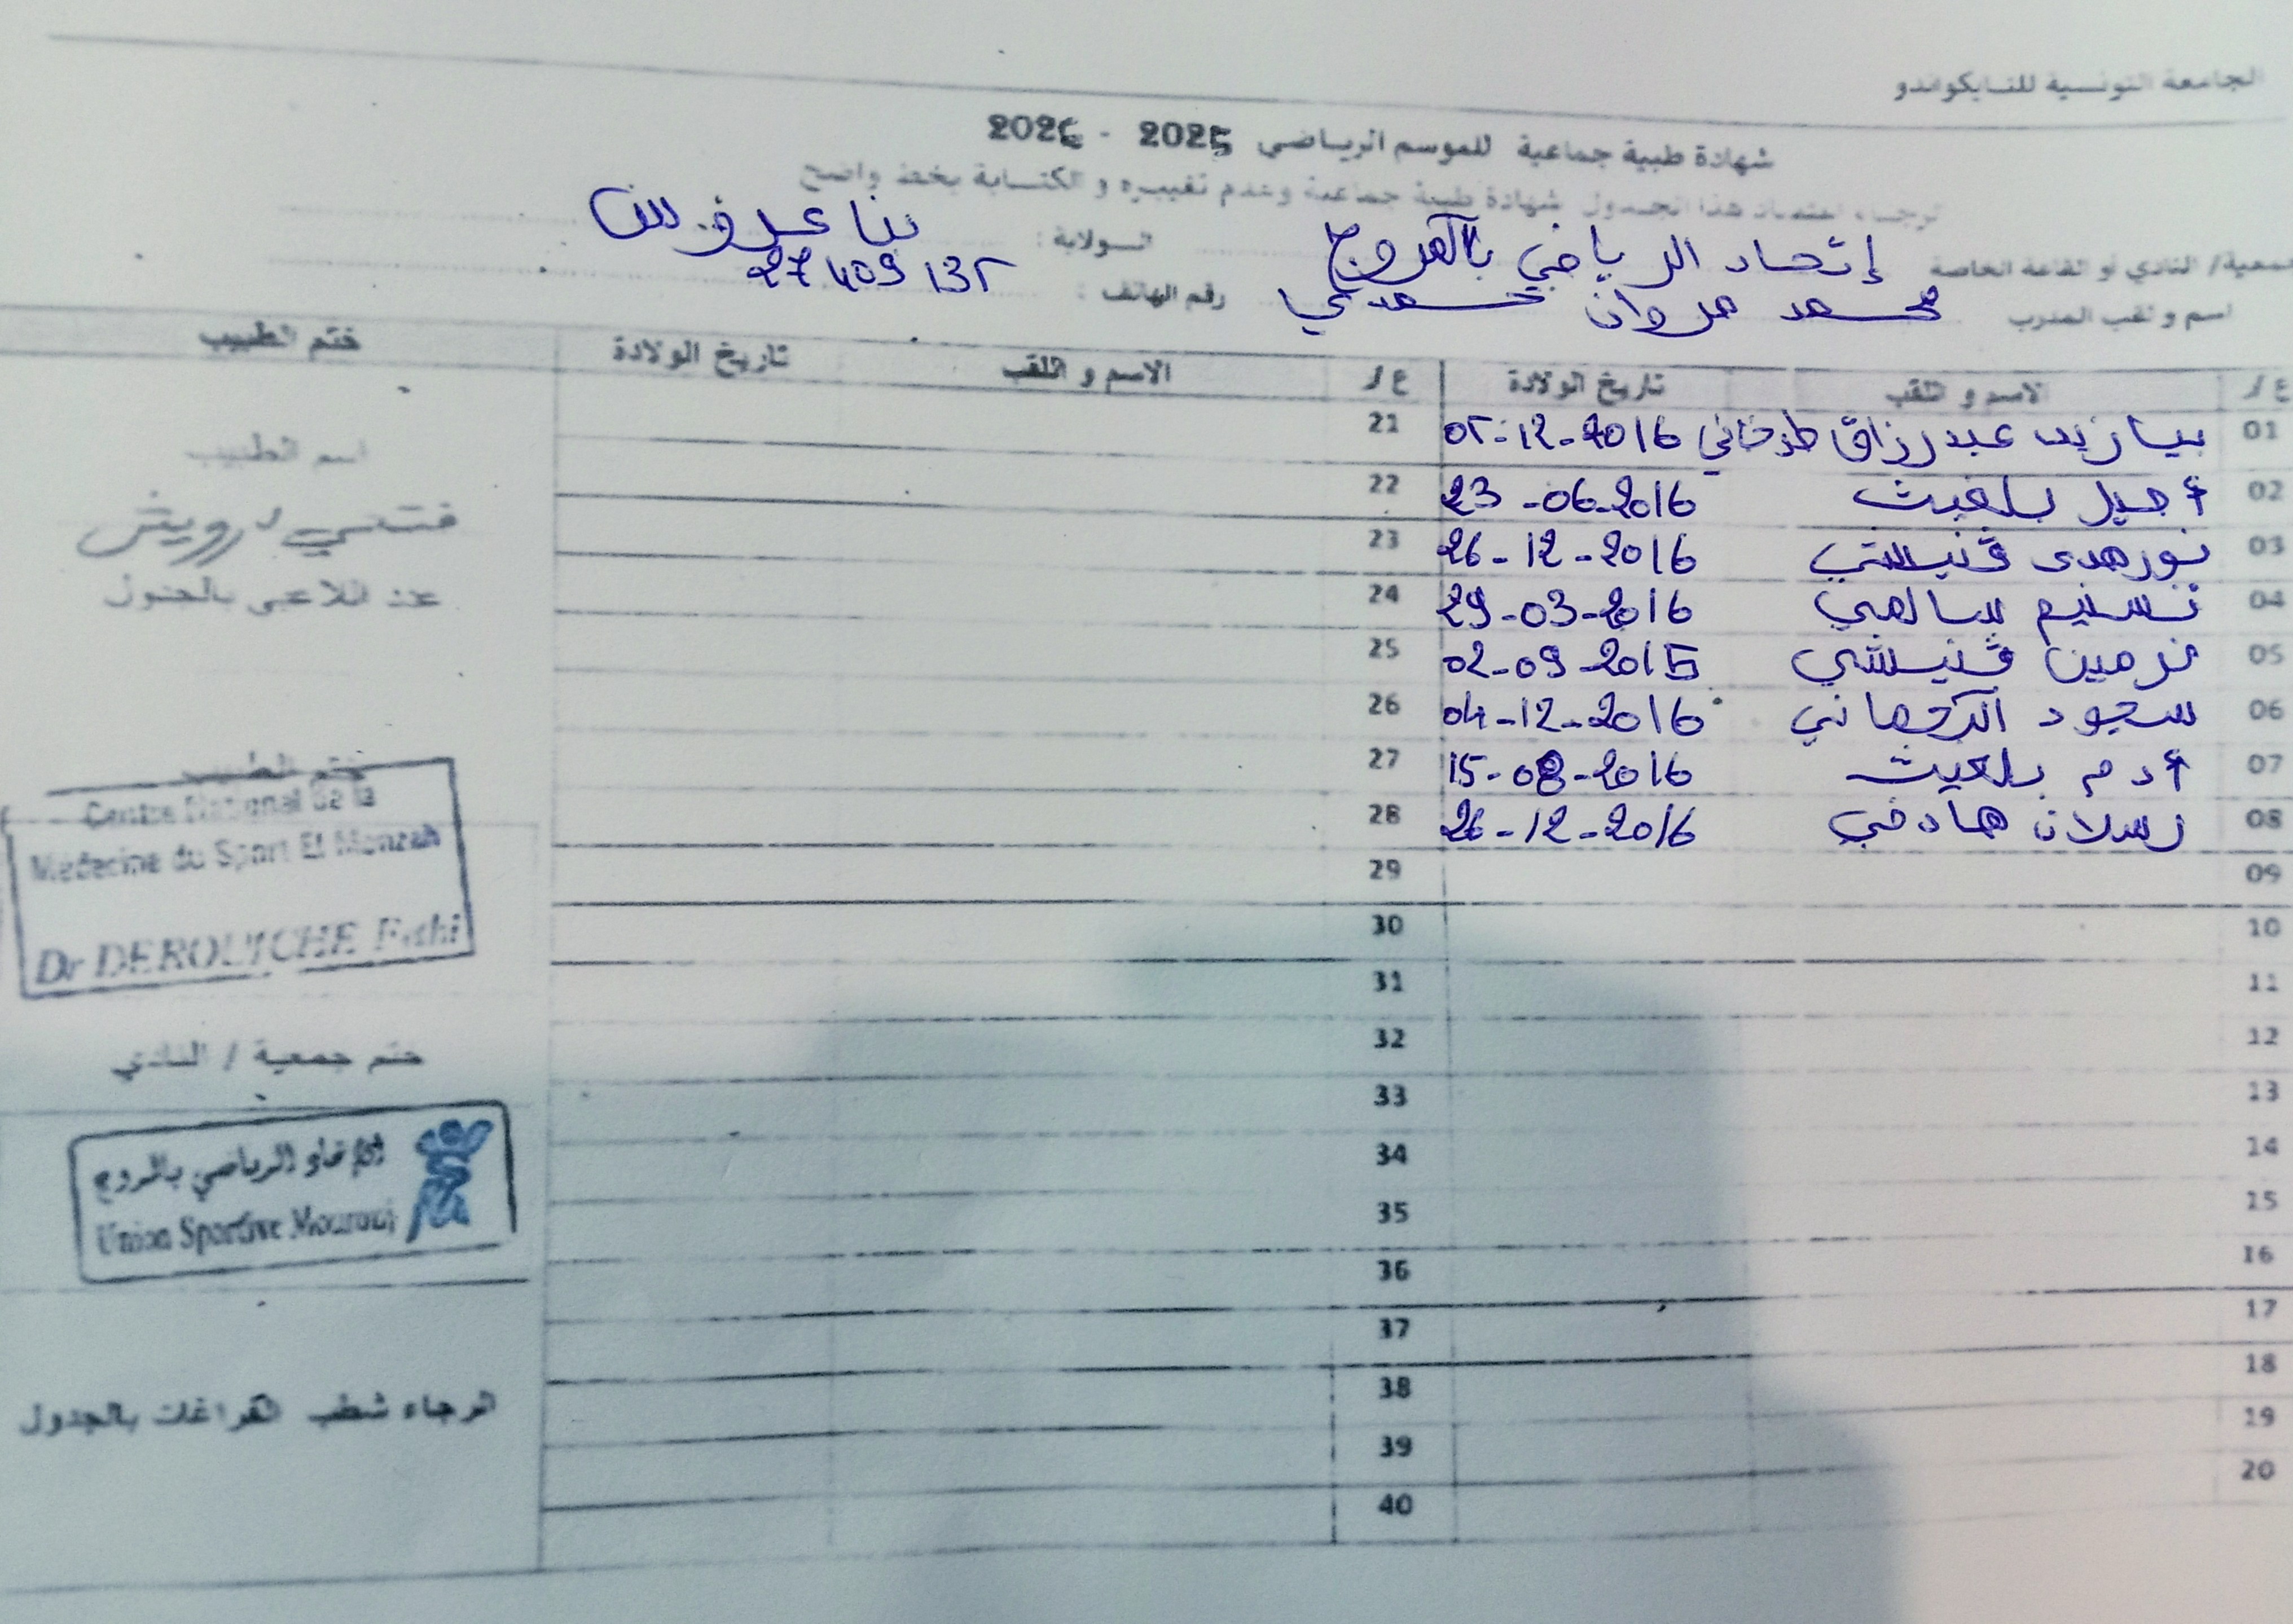 الجامعة التونسية للتايكواندو
شهادة طبية جماعية للموسم الرياضي 2025 - 2026
الرجاء اعتماد هذا الجدول شهادة طبية جماعية وعدم تغييره و الكتابة بخط واضح
جمعية/ النادي أو القاعة الخاصة إتحاد الرياضي بالمروج الولاية : بنا عروس
اسم و لقب المدرب محمد مروان حمدي رقم الهاتف : 27409132
ع/ الاسم و اللقب تاريخ الولادة ع/ الاسم و اللقب تاريخ الولادة ختم الطبيب
01 بيازيد عبدرزاق طرخاني 02-12-2016 21
02 أميل بلغيث 23-06-2016 22
03 نورهدى ڤنيشي 26-12-2016 23
04 تسنيم سالمي 29-03-2016 24
05 نرمين ڤنيشي 02-09-2015 25
06 سجود الترجماني 04-12-2016 26
07 أدم بلغيث 15-08-2016 27
08 رسلان همادفي 26-12-2016 28
09 29
10 30
11 31
12 32
13 33
14 34
15 35
16 36
17 37
18 38
19 39
20 40
اسم الطبيب
فتحي درويش
عدد اللاعبي بالجدول
ختم الطبيب
Centre National de la
Médecine du Sport El Menzah
Dr DEROUICHE Fethi
ختم جمعية / النادي
الإتحاد الرياضي بالمروج
Union Sportive Mourouj
الرجاء شطب الفراغات بالجدول